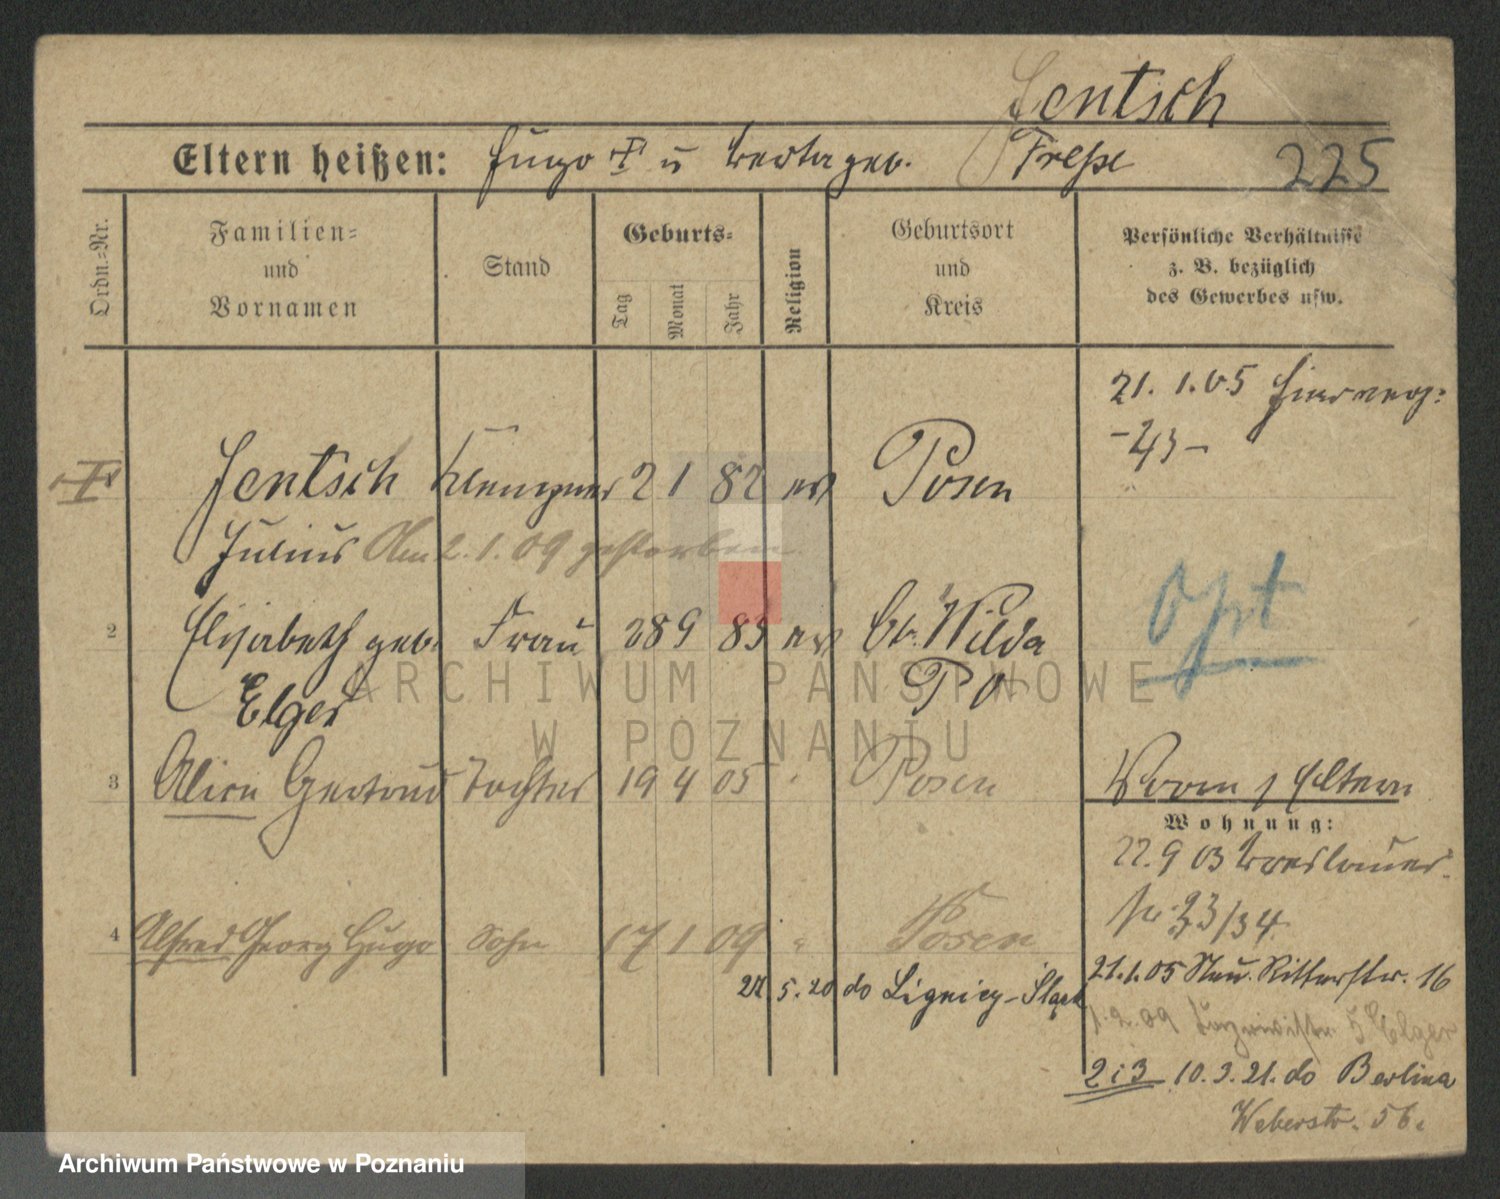 Jentsch
Eltern heißen: Hugo † u Berta geb. Fresse 225
Ordn.-Nr.
Familien-
und
Vornamen
Stand
Geburts-
Tag
Monat
Jahr
Religion
Geburtsort
und
Kreis
Persönliche Verhältnisse
z. B. bezüglich
des Gewerbes usw.
21. 1. 05
- 43 -
Jentsch Klempner 2 1 82 ev Posen
Julius Am 2. 1. 09 gestorben
2 Elisabeth geb. Frau 28 9 83 ev St. Wilda
Elger P O
Opt
3 Alice Gertrud Tochter 19 4 05 " Posen
Eltern
Wohnung:
22. 9 03 Breslauer-
str 33/34
4 Alfred Georg Hugo Sohn 17 1 09 " Posen
21. 1. 05 Neu. Ritterstr. 16
5. 20 do Lignicy - Śląsk
1. 2. 09 5 Elger
2 i 3 10. 3. 21. do Berlina
Weberstr. 56.
ARCHIWUM PAŃSTWOWE
W POZNANIU
Archiwum Państwowe w Poznaniu